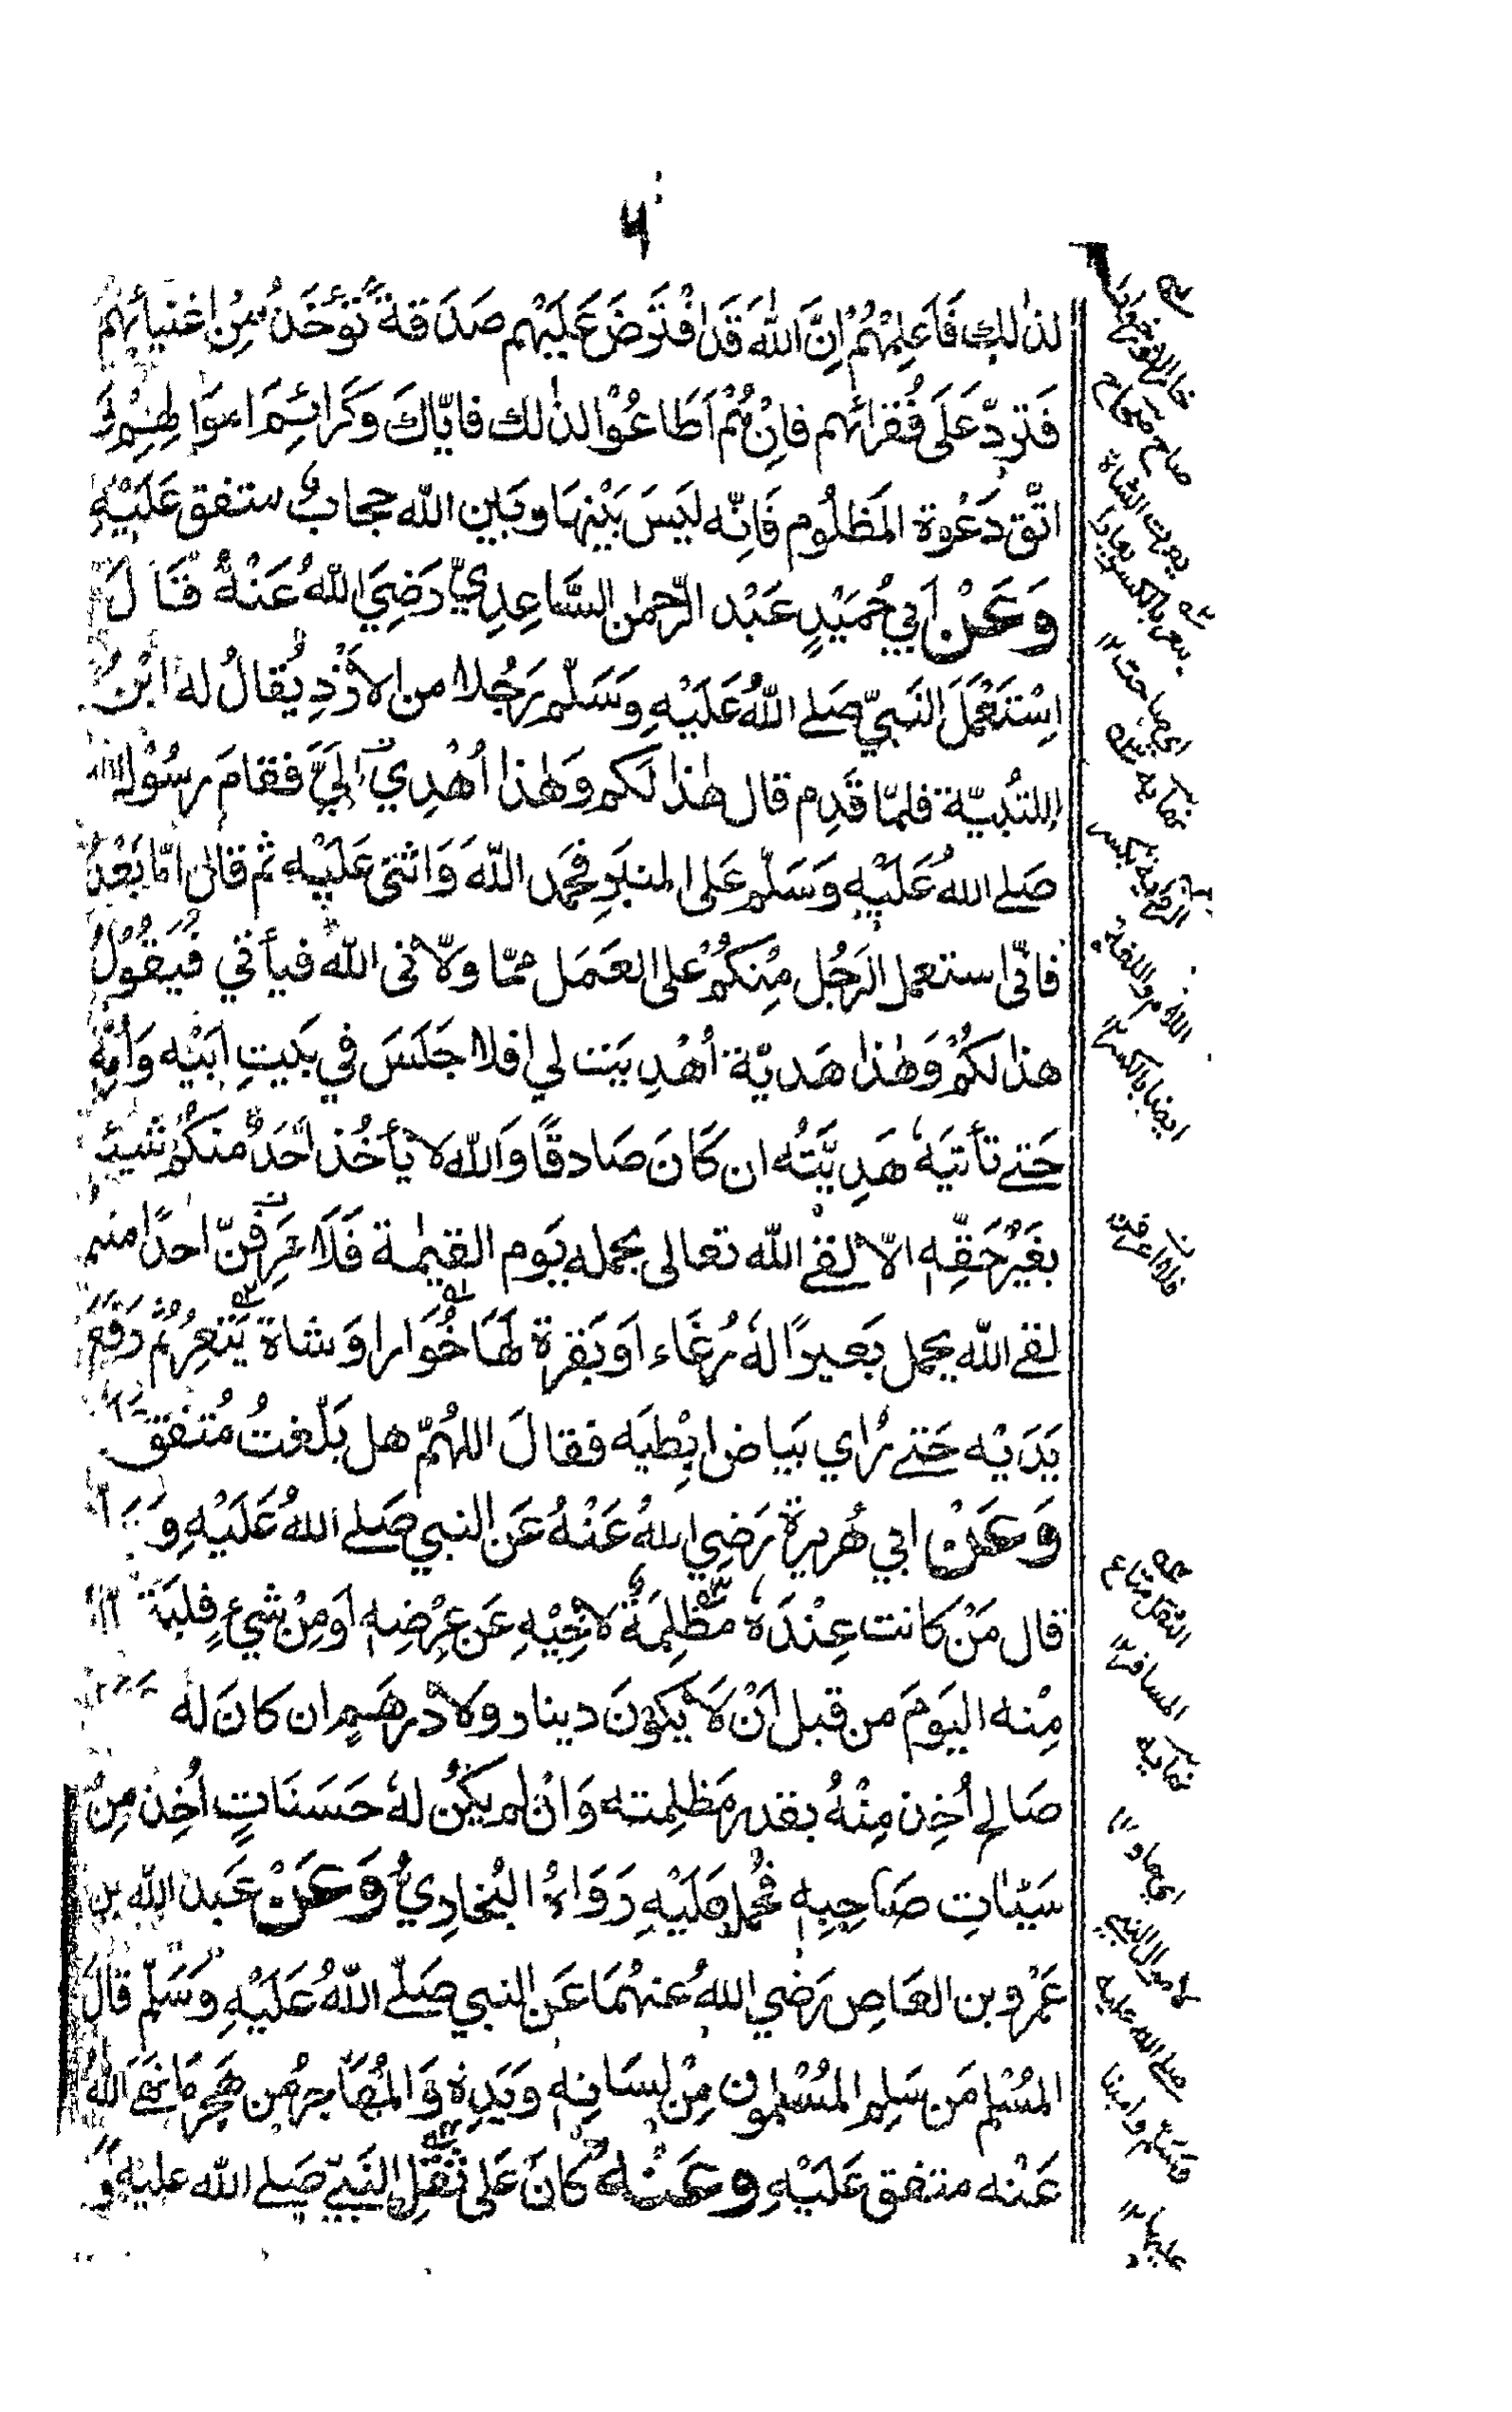 لذٰلك فَاَعلِمْهُمْ اِنَّ اللهَ قَدِ افْتَرَضَ عَلَيْهم صَدَقة تُؤخَذُ مِنْ اغنيائهمْ
فَتردّ عَلَى فُقرائهم فاِنْ هُمْ اَطَاعُوْا لذٰلك فايّاكَ وَكَرائِمَ اموَالِهِمْ وَ
اتَّق دَعْوة المَظلُوم فَاِنّه لَيسَ بَيْنهَا وبَين الله حجابٌ متفق عَلَيْهِ
وَعَنْ اَبِي حُمَيْدٍ عَبْد الرّحمٰن السَّاعِدِيِّ رَضِيَ اللهُ عَنْهُ قَالَ
اِسْتَعْمَلَ النَبِيّ صَلے اللهُ عَلَيْهِ وَسَلّم رَجُلا من الاَزْدِ يُقالُ لهُ ابْنُ
اللتُبيّة فلمّا قَدِم قال هٰذا لَكم وَهٰذا اُهْدِيَ اِلَيَّ فقامَ رسُوْل الله
صَلے الله عَلَيْهِ وَسَلّم عَلى المنبَرِ فحَمِد اللهَ وَاثنى عَلَيْهِ ثم قال امّا بَعْدُ
فانّى استعمل الرَجُل مِنكُمْ على العَمَل ممّا ولّانى الله فيأتي فَيَقُوْلُ
هذا لكُمْ وَهٰذا هَديّة اُهْدِيَت لي افلا جَلَسَ في بَيتِ ابَيْه وَاُمِّهِ
حَتے تأتيَهٗ هَدِيَّتُه ان كَانَ صَادقًا وَالله لا يأخُذ اَحَدٌ منكُمْ شيئا
بغَيْرِ حَقِّهِ الاّ لقے الله تعالى يحمله يَوم القيٰمة فَلَا عرِفَنّ احدًا منكم
لقے الله يحمل بَعيرًا لهٗ رُغَاء اَو بَقرة لَهَا خُوَار او شاة تَيْعِرُ ثُمّ رَفَعَ
يَدَيْه حَتے رُاي بَياض اِبْطَيه فقالَ اللهُمّ هل بَلّغتُ مُتفق
وَعَنْ ابي هُريرة رَضِي اللهُ عَنْهُ عَن النبي صَلے اللهُ عَلَيْهِ وَ
قال مَنْ كانت عِنْدَهٗ مَظْلِمَةٌ لاَخِيْهِ عَن عِرْضِهِ اَو مِنْ شيءٍ
مِنْه اليَومَ من قبل اَنْ لَا يَكُوْنَ دينار ولا درهَم ان كانَ لهُ
صَالح اُخِذ مِنْهُ بقدر مَظلِمته وَانْ لم يكُن لهٗ حَسَنَاتٍ اُخِذ مِنْ
سَيّئاتِ صَاحِبِهِ فحُمل عَلَيْهِ رَوَاهُ البُخَارِيُّ وَعَنْ عَبد الله بن
عَمْرو بن العَاصِ رَضِي اللهُ عنهُمَا عَن النبي صَلّے اللهُ عَلَيْهِ وَسَلّم قالَ
المُسْلم مَن سَلِم المُسْلِمون مِنْ لِسَانِهِ وَيَدِهِ وَالمُهَاجرُ من هَجَرَ مَا نَهَى اللهُ
عَنْه متفق عَلَيْهِ وعَنْه كَانَ عَلى ثَقَلِ النَبِيّ صَلے الله عليهِ وَ
اي صاحت
نهايه
ايضا بالكسر
فلا اعرفن
المسافر
نهايه